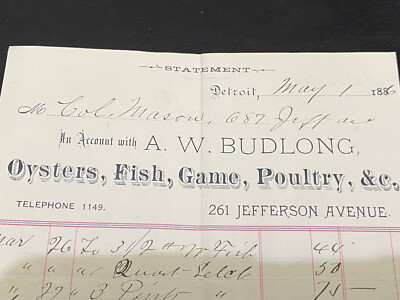 STATEMENT
Detroit, May 1 1886
M Col. Mason, 687 Jeff ave
In Account with A. W. BUDLONG,
Oysters, Fish, Game, Poultry, &c.
TELEPHONE 1149. 261 JEFFERSON AVENUE.
Mar 26 To 3 1/2 # Fish 44
" " " Quart 50
" 27 " 3 Pints " 75